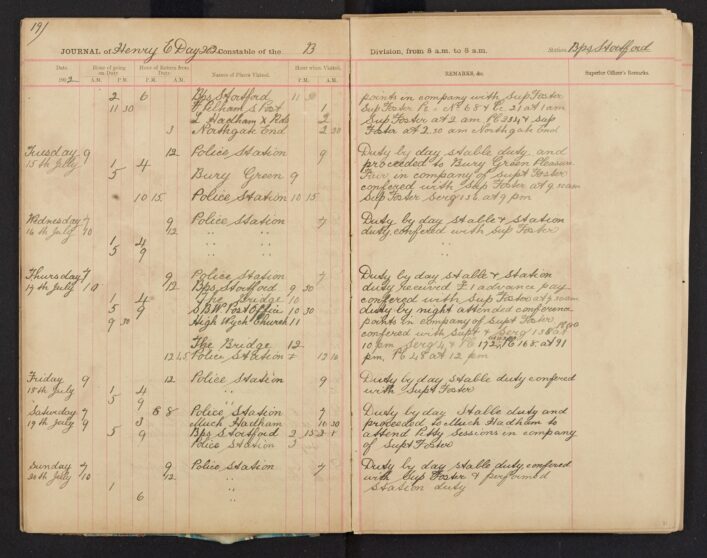 191
JOURNAL of Henry E Day 262 Constable of the B Division, from 8 a.m. to 8 a.m. Station, Bps Stortford
Date Hour of going on Duty Hour of Return from Duty Names of Places Visited. Hour when Visited. REMARKS, &c. Superior Officer's Remarks.
1902 A.M. P.M. P.M. A.M. P.M. A.M.
2 6 Bps Stortford 11 30 points in company with Sup Foster
11 30 Pelham S Post 1 Sup Foster Pc No 68 & Pc 21 at 1 am
L Hadham X Rds 2 Sup Foster at 2 am Pc 334 & Sup
3 Northgate End 2 30 Foster at 2.30 am Northgate End
Tuesday 9 12 Police Station 9 Duty by day stable duty and
15th July 1 4 proceeded to Bury Green Pleasure
5 Bury Green 9 Fair in company of Supt Foster
confered with Sup Foster at 9.30am
10 15 Police Station 10 15 Sup Foster Serg 136 at 9 pm
Wednesday 7 9 Police Station 7 Duty by day stable & station
16th July 10 12 " " duty confered with Sup Foster
1 4 " " " "
5 9 " "
Thursday 7 9 Police Station 7 Duty by day stable & station
17th July 10 12 Bps Stortford 9 30 duty received £1 advance pay
1 4 The Bridge 10 confered with Sup Foster at 9.30am
5 9 S.B.W. Post Office 10 30 duty by night attended conference
9 30 High Wych Church 11 points in company of Supt Foster
confered with Supt & Serg 138 at
The Bridge 12 10 pm Serg 4 & Pc 172 Pc 168 at 11
12 45 Police Station 12 pm, Pc 48 at 12 pm
Friday 9 12 Police Station 9 Duty by day stable duty confered
18th July 1 4 " with Supt Foster
5 9 "
Saturday 7 8 8 Police Station 7 Duty by day stable duty and
19th July 9 3 Much Hadham 10 30 proceeded to Much Hadham to
5 9 Bps Stortford 2 15 attend Petty Sessions in company
Police Station 3 of Supt Foster
Sunday 7 9 Police Station 7 Duty by day stable duty confered
20th July 10 12 " with Sup Foster & performed
1 " station duty
6 "